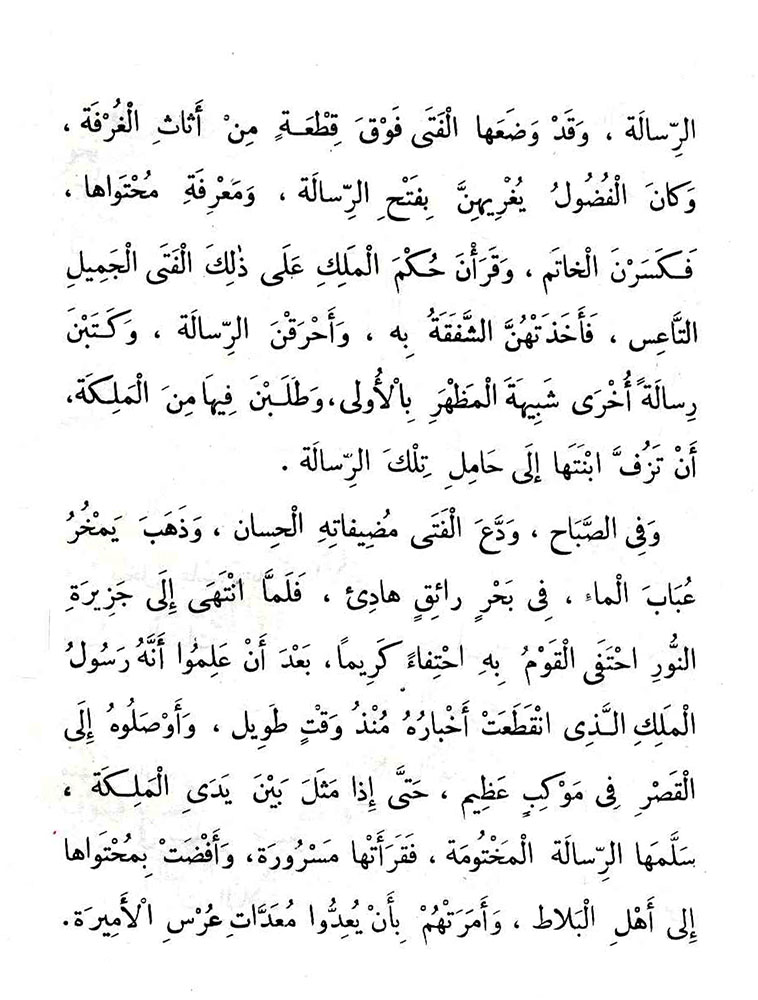 الرِّسالَة ، وَقَدْ وَضَعَها الْفَتَى فَوْقَ قِطْعَةٍ مِنْ أَثاثِ الْغُرْفَة ،
وَكانَ الْفُضُولُ يُغْرِيهِنَّ بِفَتْحِ الرِّسالَة ، وَمَعْرِفَةِ مُحْتَواها ،
فَكَسَرْنَ الْخاتَم ، وَقَرَأْنَ حُكْمَ الْمَلِكِ عَلَى ذٰلِكَ الْفَتَى الْجَمِيلِ
التَّاعِس ، فَأَخَذَتْهُنَّ الشَّفَقَةُ بِه ، وَأَحْرَقْنَ الرِّسالَة ، وَكَتَبْنَ
رِسالَةً أُخْرَى شَبِيهَةَ الْمَظْهَرِ بِالْأُولى، وَطَلَبْنَ فِيهَا مِنَ الْمَلِكَة،
أَنْ تَزُفَّ ابْنَتَها إلَى حَامِلِ تِلْكَ الرِّسالَة .
وَفِى الصَّبَاح ، وَدَّعَ الْفَتَى مُضِيفاتِهِ الْحِسان ، وَذَهَبَ يَمْخُرُ
عُبَابَ الْماء ، فِى بَحْرٍ رائِقٍ هادِئ ، فَلَمَّا انْتَهَى إِلَى جَزِيرَةِ
النُّورِ احْتَفَى الْقَوْمُ بِهِ احْتِفاءً كَرِيماً، بَعْدَ أَنْ عَلِمُوا أَنَّهُ رَسُولُ
الْمَلِكِ الَّذِى انْقَطَعَتْ أَخْبارُهُ مُنْذُ وَقْتٍ طَوِيل ، وَأَوْصَلُوهُ إلَى
الْقَصْرِ فِى مَوْكِبٍ عَظِيم ، حَتَّى إذا مَثَلَ بَيْنَ يَدَىِ الْمَلِكَة ،
سَلَّمَهَا الرِّسالَة الْمَخْتُومَة ، فَقَرَأَتْها مَسْرُورَة، وَأَفْضَتْ بِمُحْتَواها
إلى أَهْلِ الْبَلاط ، وَأَمَرَتْهُمْ بِأَنْ يُعِدُّوا مُعَدَّاتِ عُرْسِ الْأَمِيرَة.